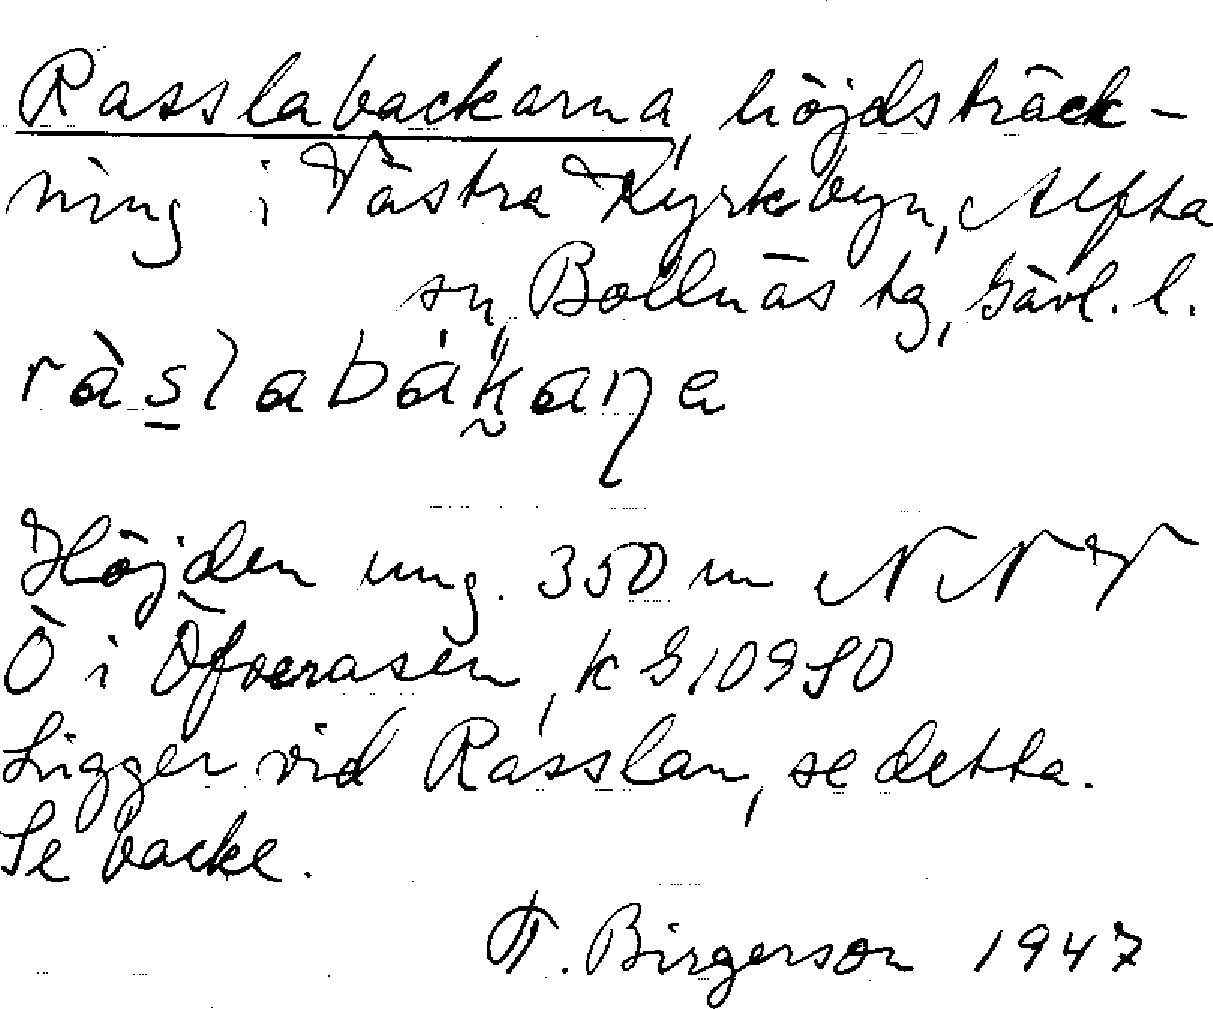 Rasslabackarna, höjdsträck-
ning i Västra Kyrkbyn, Alfta
sn, Bollnäs tg, Gävl. l.
ràslabák̰aŋa
Höjden ung. 350 m NNV
Ö i Öfverasen, k G10950
Ligger vid Rasslan, se detta.
Se backe.
F. Birgerson 1947